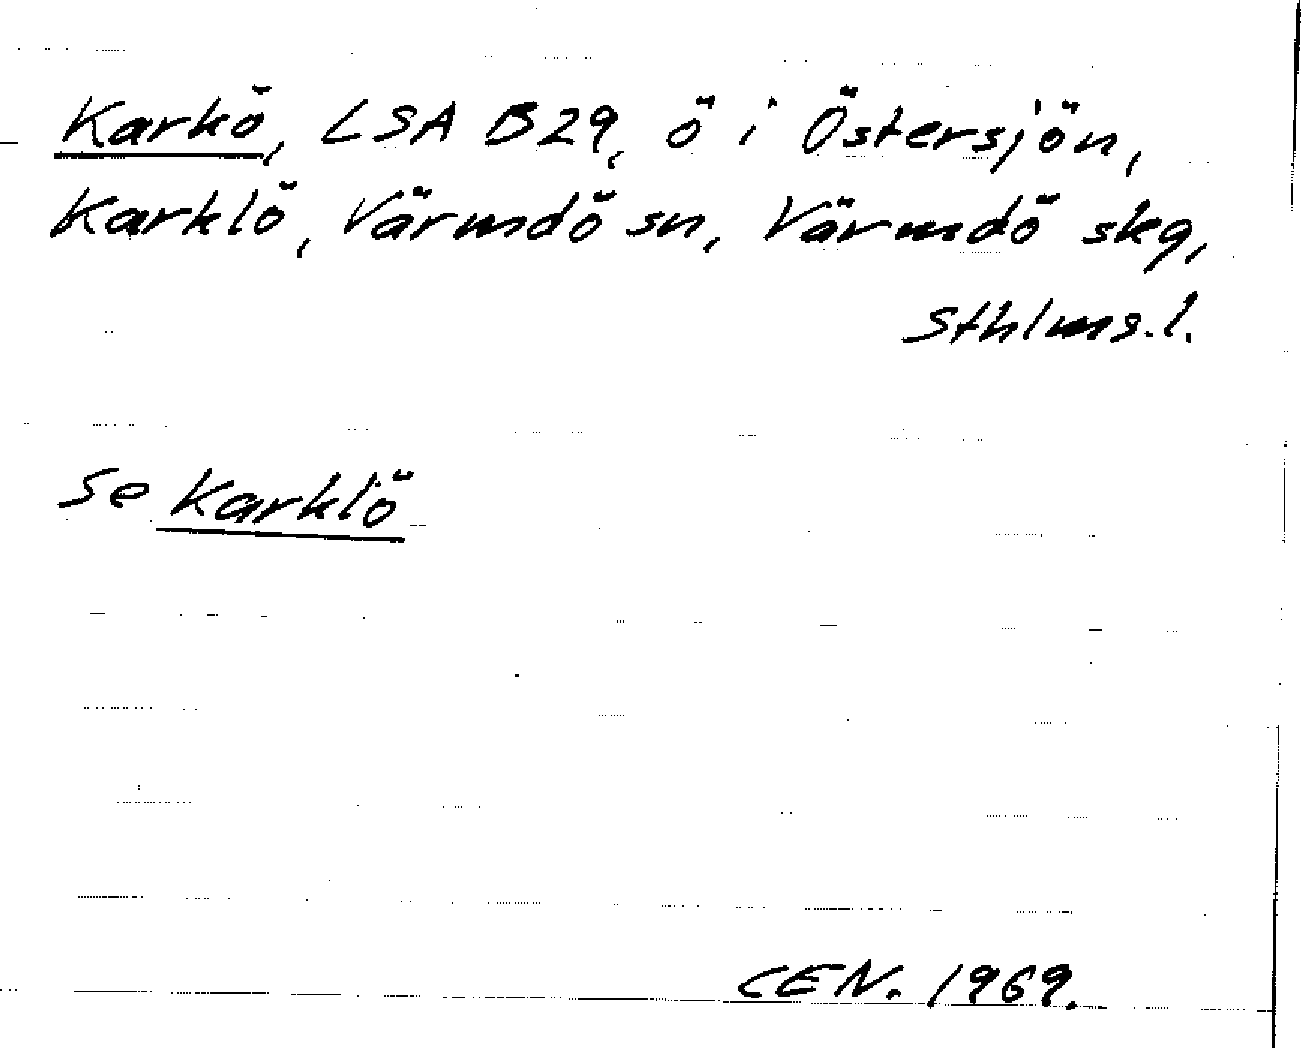 Karkö, LSA B29, ö i Östersjön,
Karklö, Värmdö sn, Värmdö skg,
Sthlms.l.
Se Karklö
CEN. 1969.